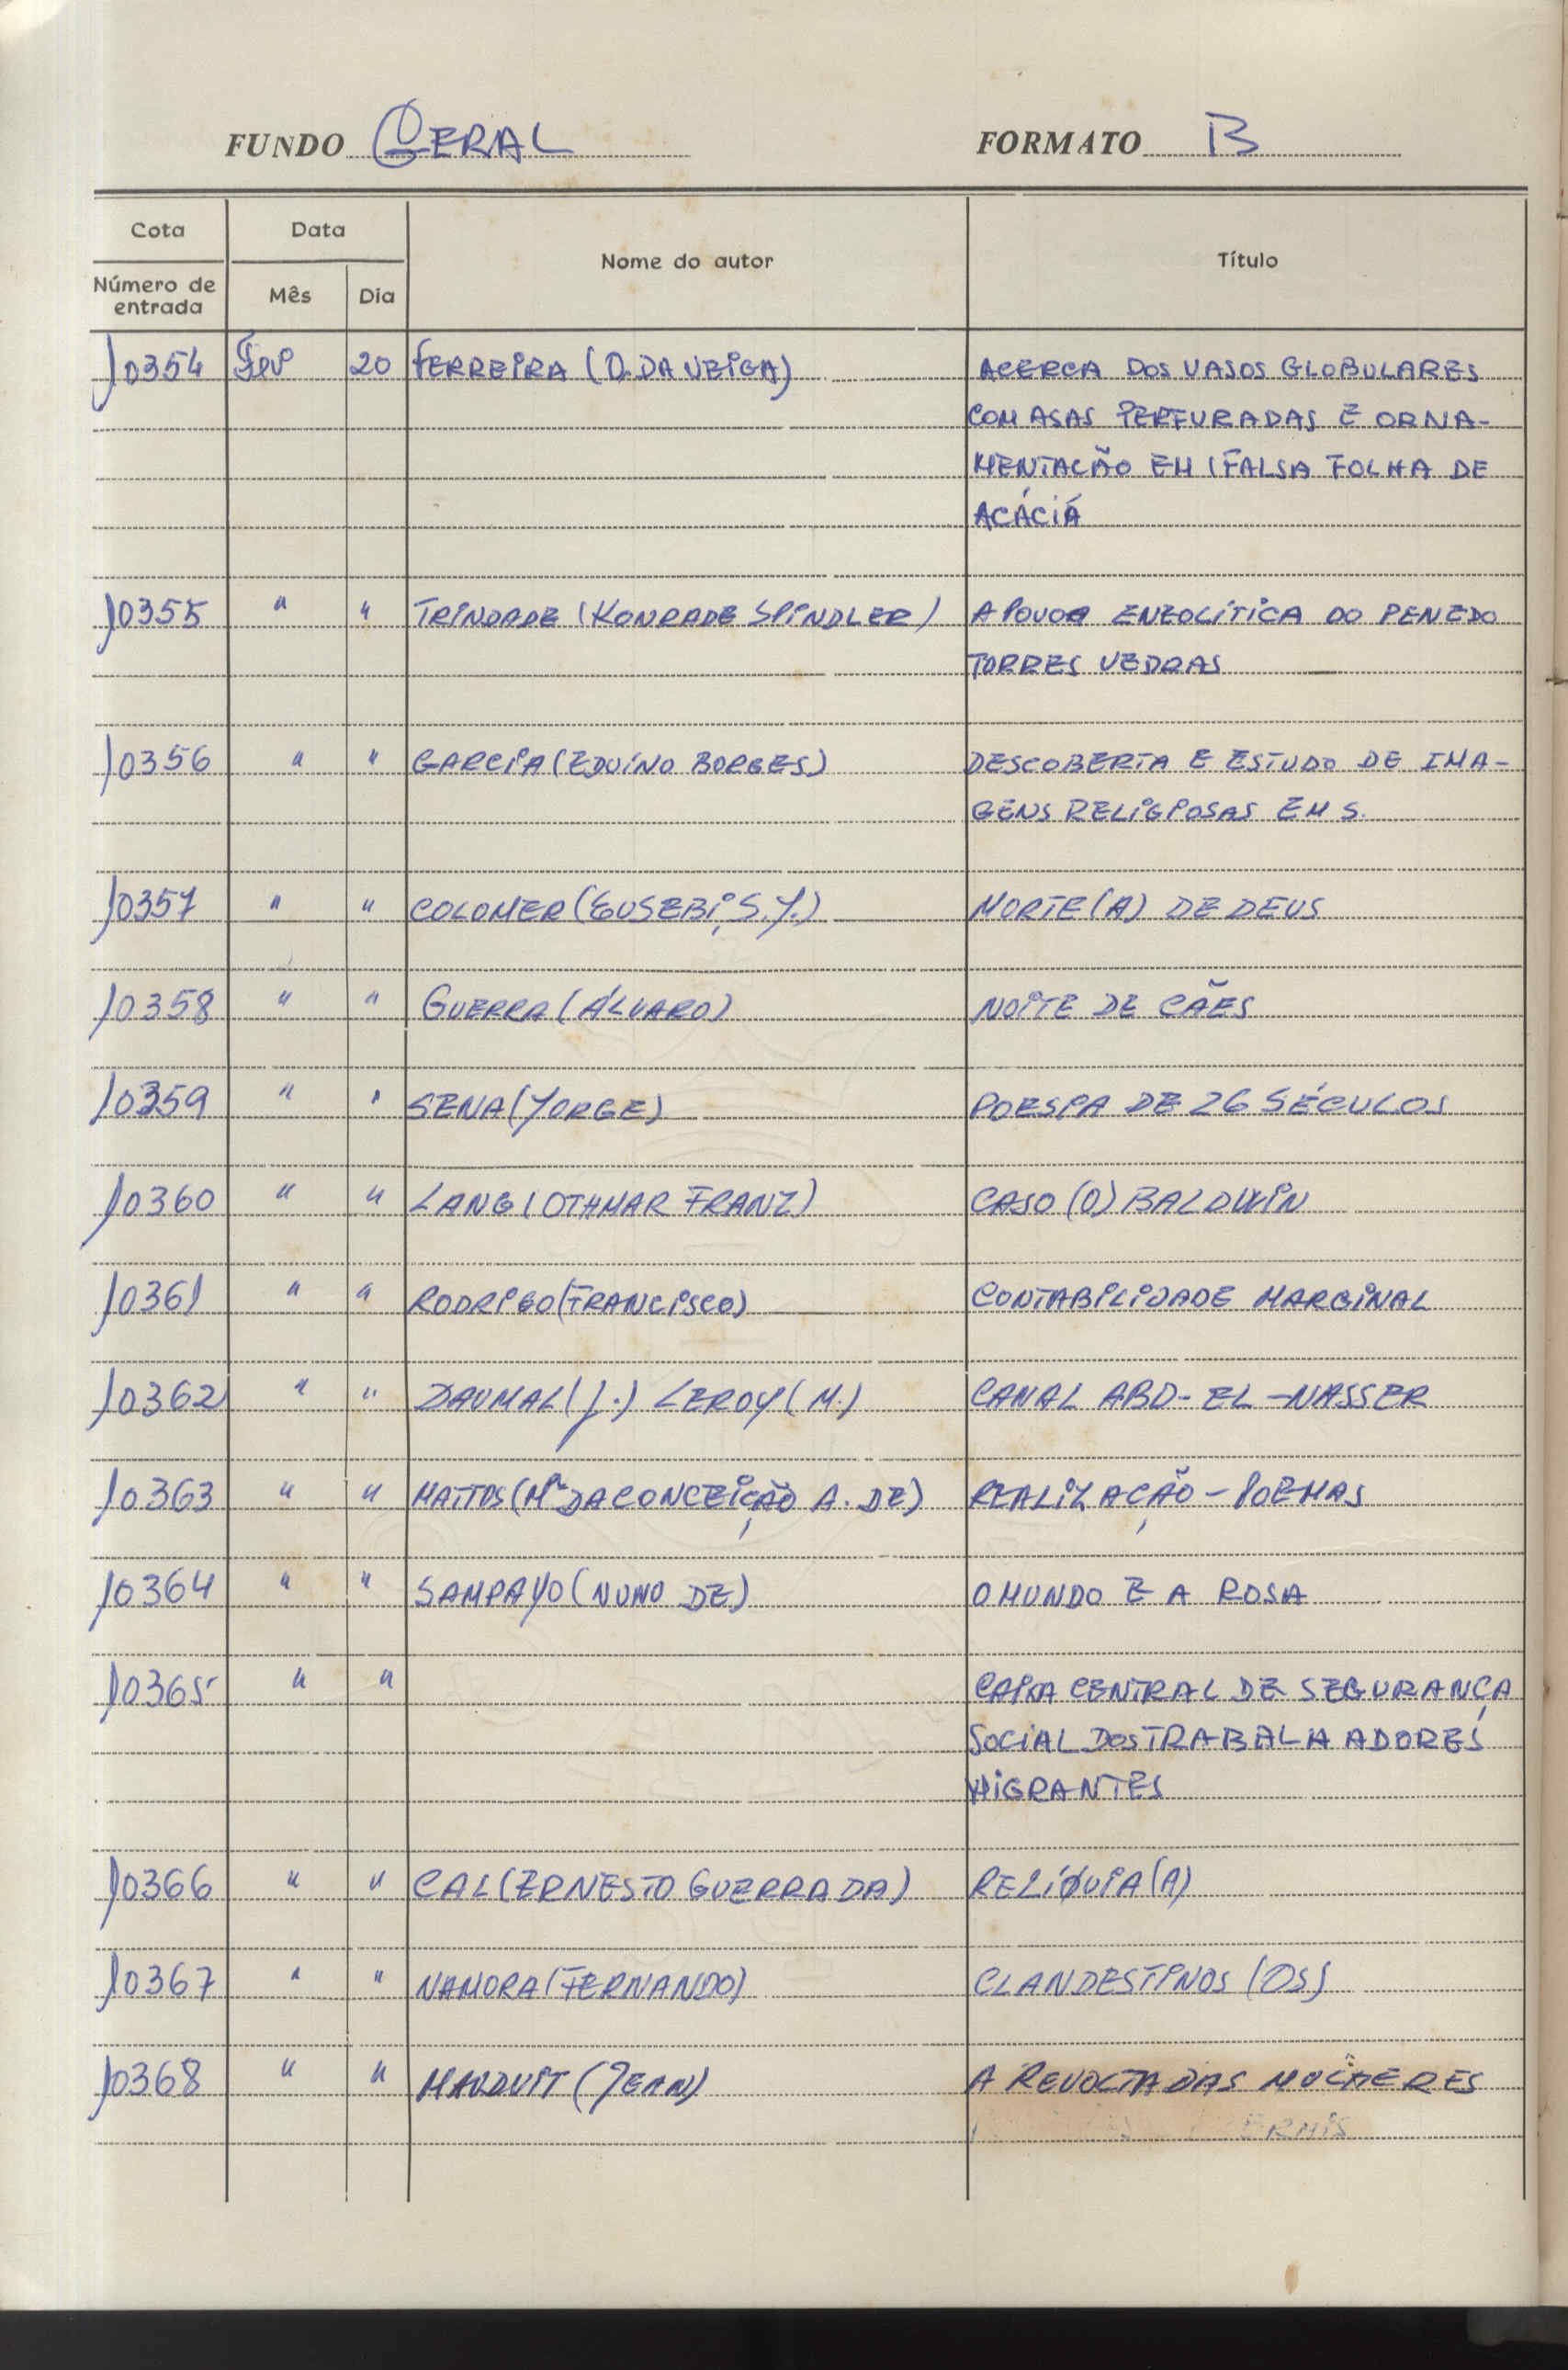 FUNDO GERAL FORMATO B
Cota Data Nome do autor Título
Número de entrada Mês Dia
10354 Fev 20 FERREIRA (O. DA VEIGA) ACERCA DOS VASOS GLOBULARES
COM ASAS PERFURADAS E ORNA-
MENTACÃO EM (FALSA FOLHA DE
ACÁCIÁ
10355 " " TRINDADE (KONRADE SPINDLER) A POVOA ENEOLÍTICA DO PENEDO
TORRES VEDRAS
10356 " " GARCIA (EDUÍNO BORGES) DESCOBERTA E ESTUDO DE IMA-
GENS RELIGIOSAS EM S.
10357 " " COLOMER (EUSEBI, S.J.) MORTE (A) DE DEUS
10358 " " GUERRA (ÁLVARO) NOITE DE CÃES
10359 " " SENA (JORGE) POESIA DE 26 SÉCULOS
10360 " " LANG (OTHMAR FRANZ) CASO (O) BALDWIN
10361 " " RODRIGO (FRANCISCO) CONTABILIDADE MARGINAL
10362 " " DAUMAL (J.) LEROY (M.) CANAL ABD-EL-NASSER
10363 " " MATTOS (Mª DA CONCEIÇÃO A. DE) REALIZAÇÃO - POEMAS
10364 " " SAMPAYO (NUNO DE) O MUNDO E A ROSA
10365 " " CAIXA CENTRAL DE SEGURANÇA
SOCIAL DOS TRABALHADORES
MIGRANTES
10366 " " CAL (ERNESTO GUERRA DA) RELÍQUIA (A)
10367 " " NAMORA (FERNANDO) CLANDESTINOS (OS)
10368 " " MAUDUIT (JEAN) A REVOLTA DAS MULHERES